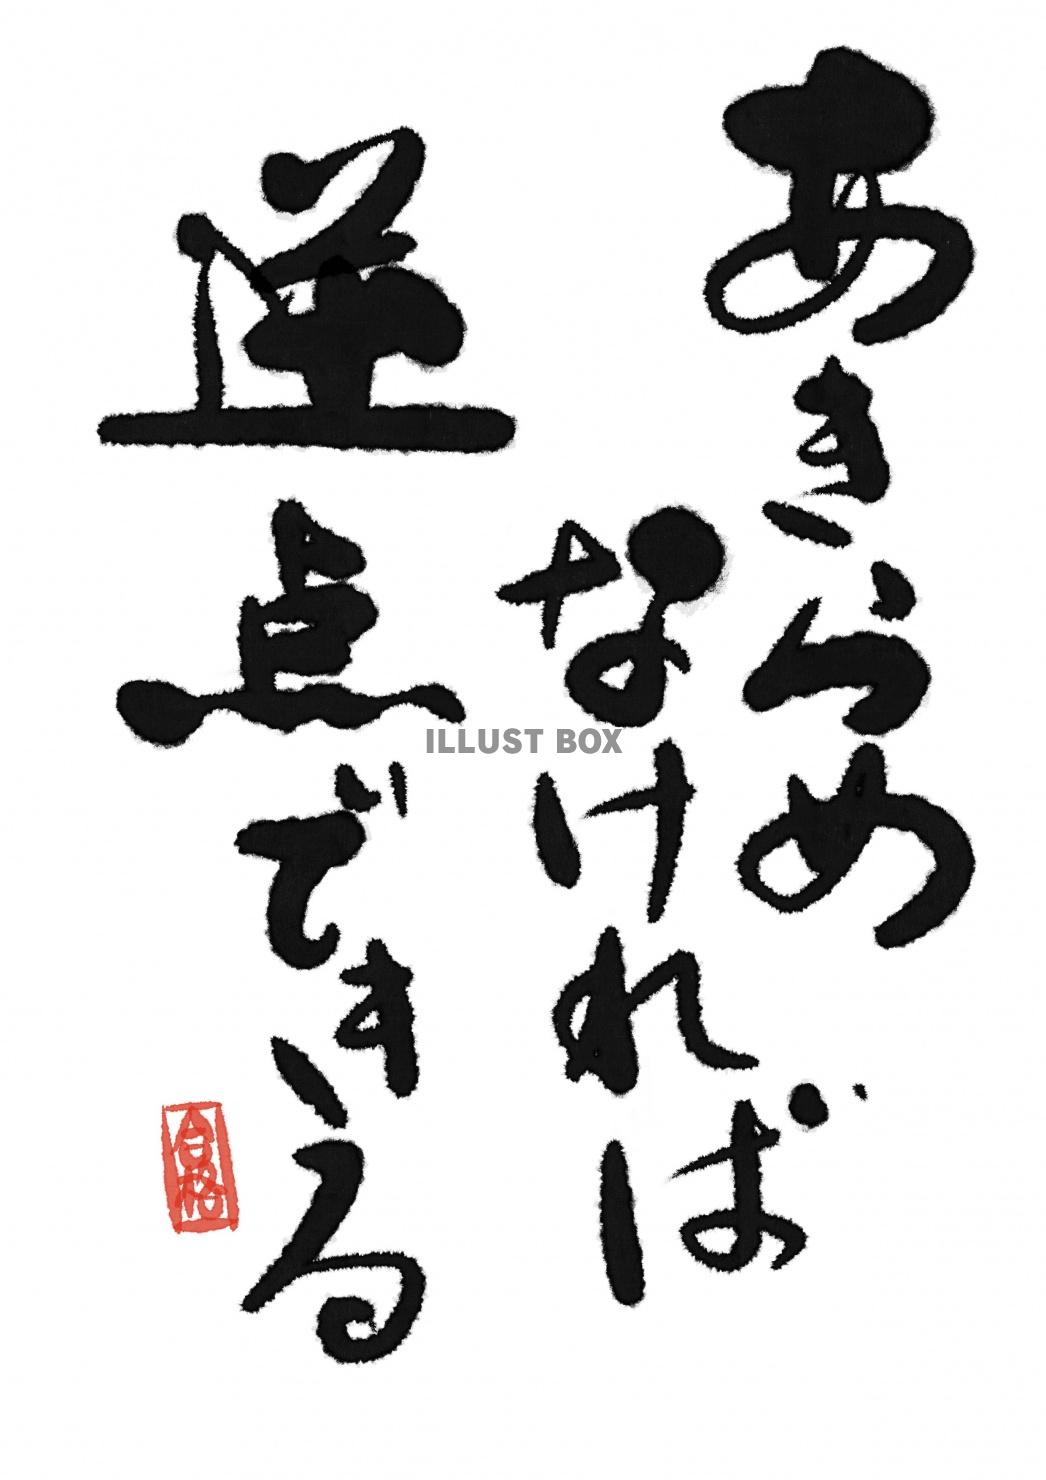 あきらめ
なければ
逆点できる
合格
ILLUST BOX